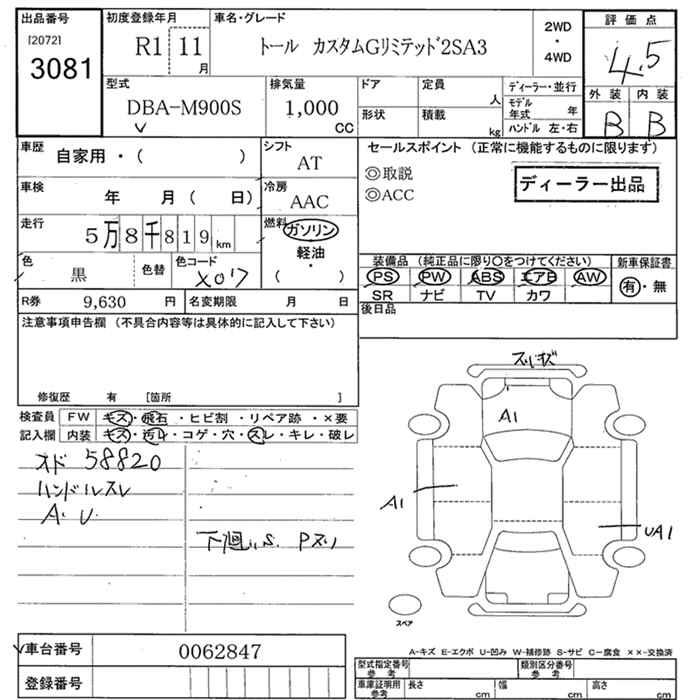 出品番号
[2072]
3081
初度登録年月
R1 11月
車名・グレード
トール カスタムGリミテッド2SA3
2WD
・
4WD
評価点
4.5
外装 内装
B B
型式
DBA-M900S
排気量
1,000
CC
ドア
定員
人
形状
積載
kg
ディーラー・並行
モデル年式 年
ハンドル 左・右
車歴
自家用・( )
シフト
AT
車検
年 月( 日)
冷房
AAC
走行
5万8千819km
燃料
ガソリン
軽油
・
( )
色
黒
色替
色コード
X07
R券 9,630 円
名変期限 月 日
セールスポイント (正常に機能するものに限ります)
◎取説
◎ACC
ディーラー出品
装備品 (純正品に限り○をつけてください)
PS PW ABS エアB AW
SR ナビ TV カワ
新車保証書
有・無
後日品
注意事項申告欄 (不具合内容等は具体的に記入して下さい)
修復歴 有 [箇所 ]
検査員記入欄
FW キズ・飛石・ヒビ割・リペア跡・×要
内装 キズ・汚レ・コゲ・穴・スレ・キレ・破レ
オド 58820
ハンドルスレ
A. U.
下廻り、S. Pズリ
スリキズ
A1
A1
UA1
スペア
A-キズ E-エクボ U-凹み W-補修跡 S-サビ C-腐食 ××-交換済
車台番号
0062847
登録番号
型式指定番号 参考
類別区分番号 参考
車庫証明用 参考
長さ cm
幅 cm
高さ cm